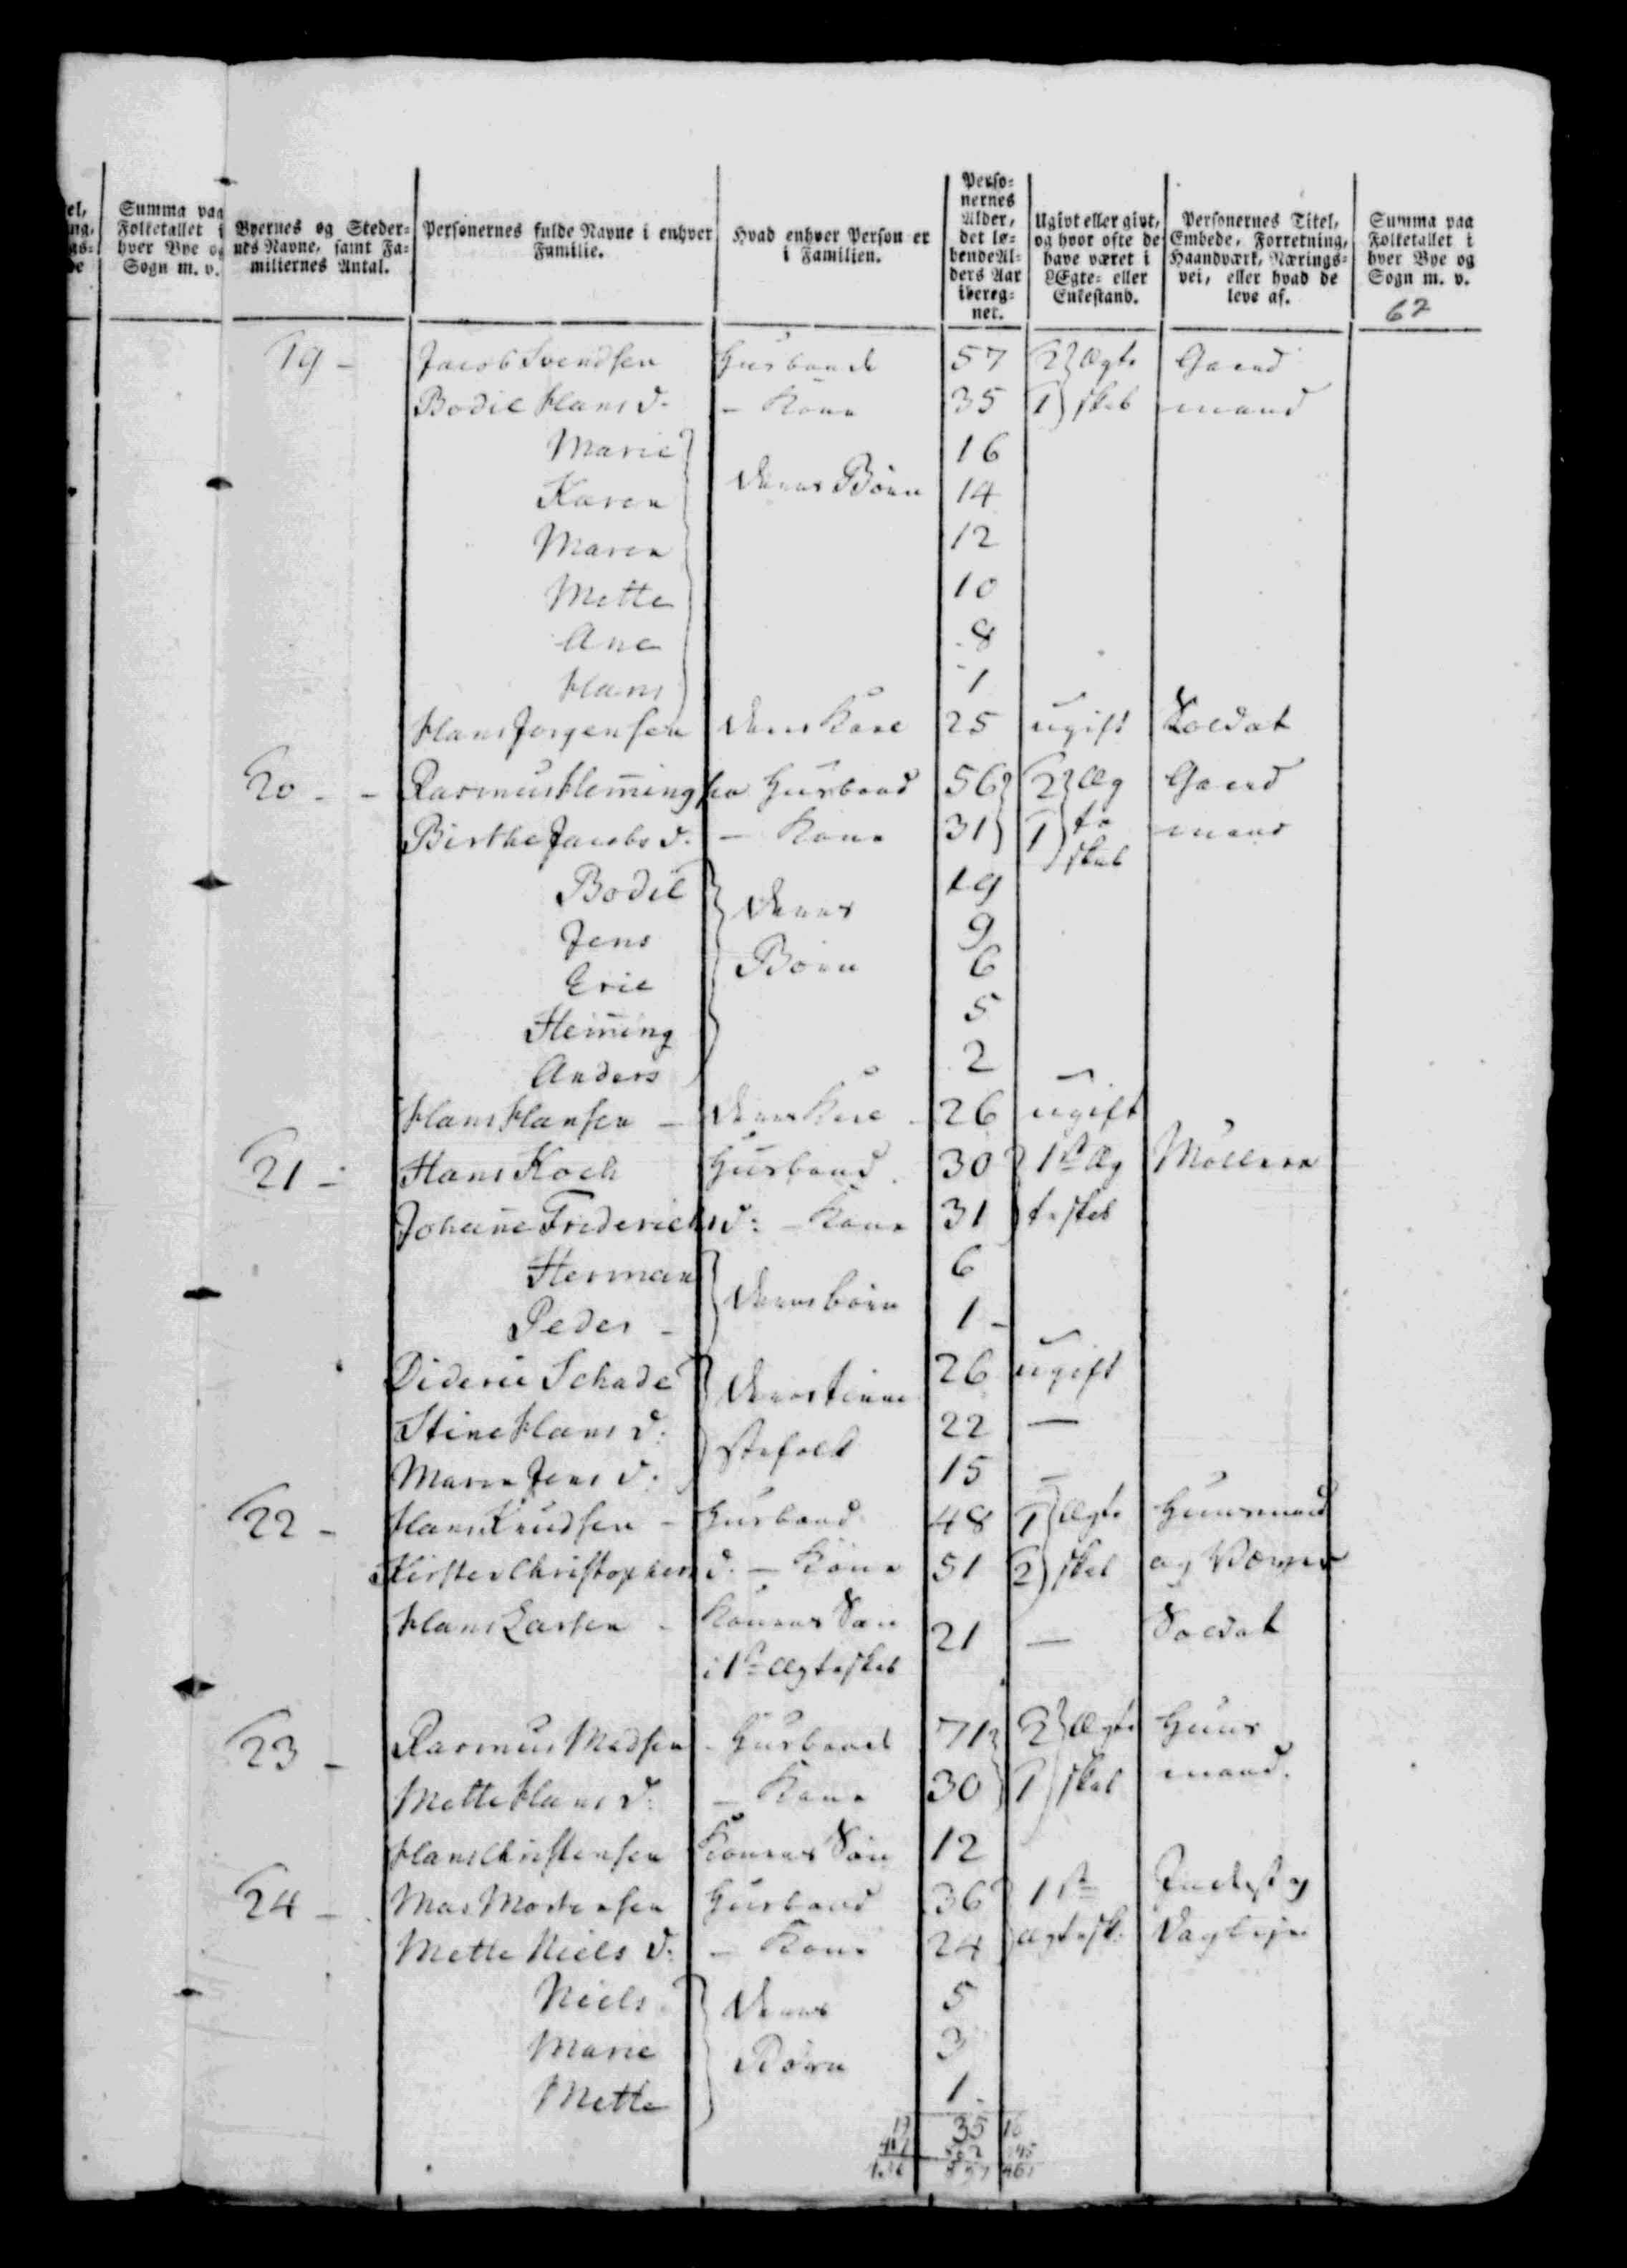 Summa paa
Folketallet i
hver Bye og
Sogn m. v.
Byernes og Steder-
nes Navne, samt Fa-
miliernes Antal.
Personernes fulde Navne i enhver
Familie.
Hvad enhver Person er
i Familien.
Perso-
nernes
Alder,
det lø-
bende Al-
ders Aar
ibereg-
net.
Ugivt eller givt,
og hvor ofte de
have været i
Ægte- eller
Enkestand.
Personernes Titel,
Embede, Forretning,
Haandværk, Nærings-
vei, eller hvad de
leve af.
Summa paa
Folketallet i
hver Bye og
Sogn m. v.
62
19 - Jacob Svendsen Husbonde 57 2} Ægte Gaard
Bodil Hans d. - Kone 35 1} skab mand
Marie 16
Karen Deres Børn 14
Maren 12
Mette 10
Ane 8
Hans 1
Hans Jørgensen Deres Karl 25 ugift Soldat
20 - - Rasmus Hem̄ingsen Husbond 56 2} Æg Gaard
Birthe Jacobs d. - Kone 31 1} te mand
skab
Bodil Deres 19
Jens 9
Eric Børn 6
Hem̄ing 5
Anders 2
Hans Hansen - Deres Karl 26 ugift
21 - Hans Koch Husbond 30 1ste Æg Møllere
Johan̄e Friderichs d: - Kone 31 teskab
Herman 6
Peder - Deres børn 1 -
Dideric Schade Deres tiene 26 ugift
Stine Hans d: 22 -
Maren Jens d. stefolk 15 -
22 - Hans Knudsen - Husbond 48 1} Ægte Huusmand
Kirsten Christophers d. - Kone 51 2} skab og Væver
Hans Larsen - Konens Søn 21 - Soldat
i 1ste Ægteskab
23 - Rasmus Madsen - Husbond 71 2} Ægte Huus
Mette Hans d: - Kone 30 1} skab mand.
Hans Christensen Konens Søn 12
24 - Mas Mortensen Husbond 36 1ste
Mette Niels d: - Kone 24 Ægtesk:
Niels Deres 5
Marie Børn 3
Mette 1
35